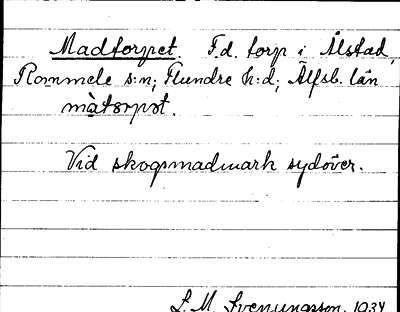 Madtorpet. F.d. torp i Ålstad,
Rommele s:n; Flundre h:d; Älfsb. län
màtɔrpət.
Vid skogsmadmark sydöver.
S. M. Svenungsson. 1934